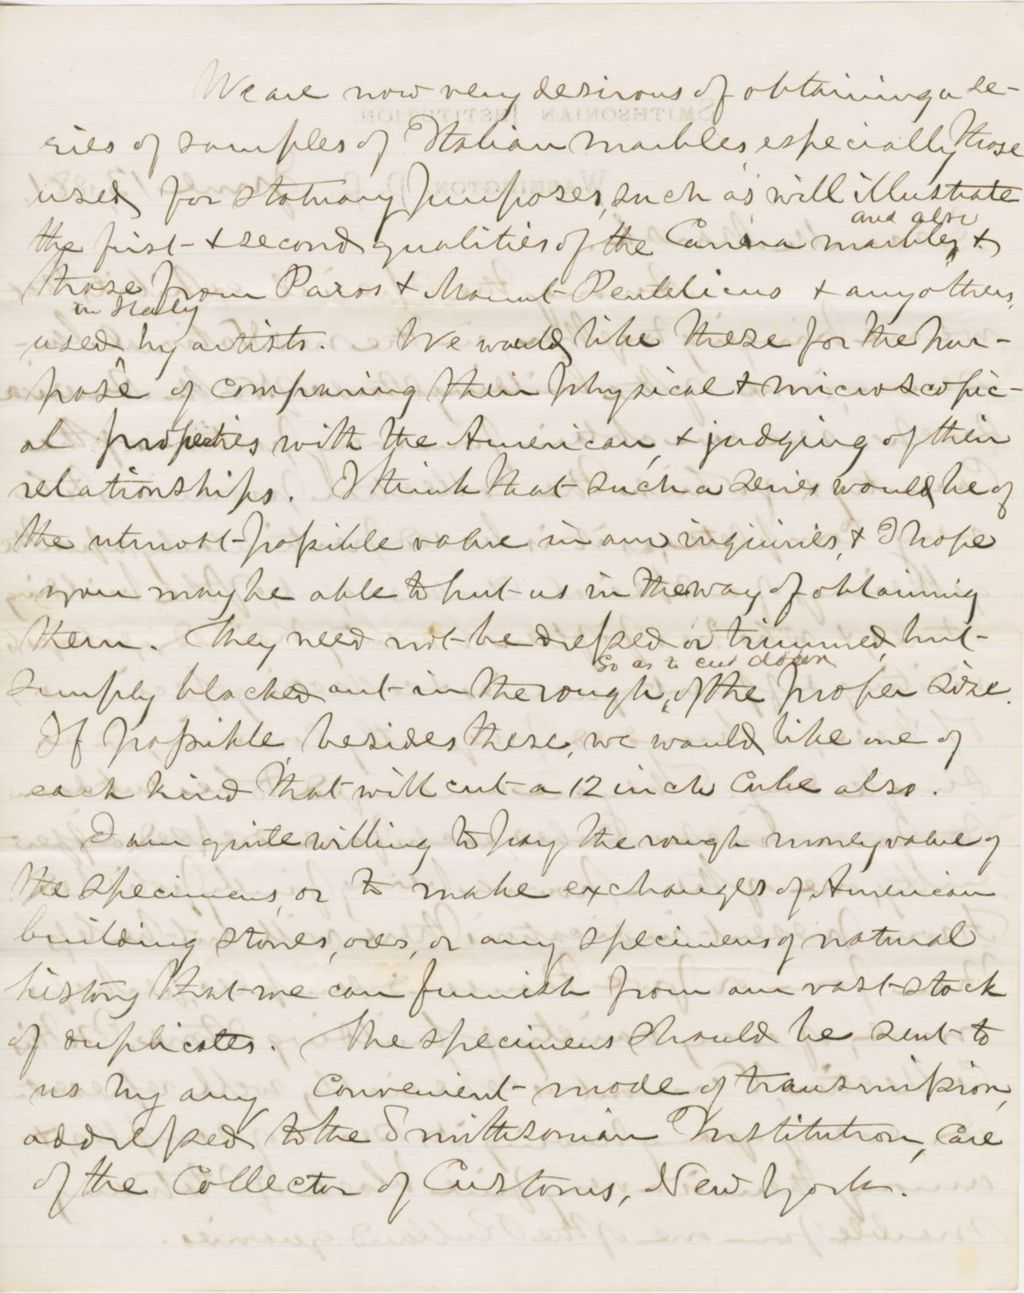 We are now very desirous of obtaining a se-
ries of samples of Italian marbles, especially those
used for statuary purposes, such as will illustrate
the first & second qualities of the Carrara marbles, and also &
those from Paros & Mount Pentelicus & any others
used in Italy by artists. We would like these for the pur-
pose of comparing their physical & microscopic-
al properties with the American, & judging of their
relationships. I think that such a series would be of
the utmost possible value in our inquiries, & I hope
you may be able to put us in the way of obtaining
them. They need not be dressed or trimmed, but
simply blocked out in the rough, so as to cut down of the proper size.
If possible, besides these, we would like one of
each kind that will cut a 12 inch cube also.
I am quite willing to pay the rough money value of
the specimens, or to make exchanges of American
building stones, ores, or any specimens of natural
history that we can furnish from our vast stock
of duplicates. The specimens should be sent to
us by any convenient mode of transmission,
addressed to the Smithsonian Institution, Care
of the Collector of Customs, New York.